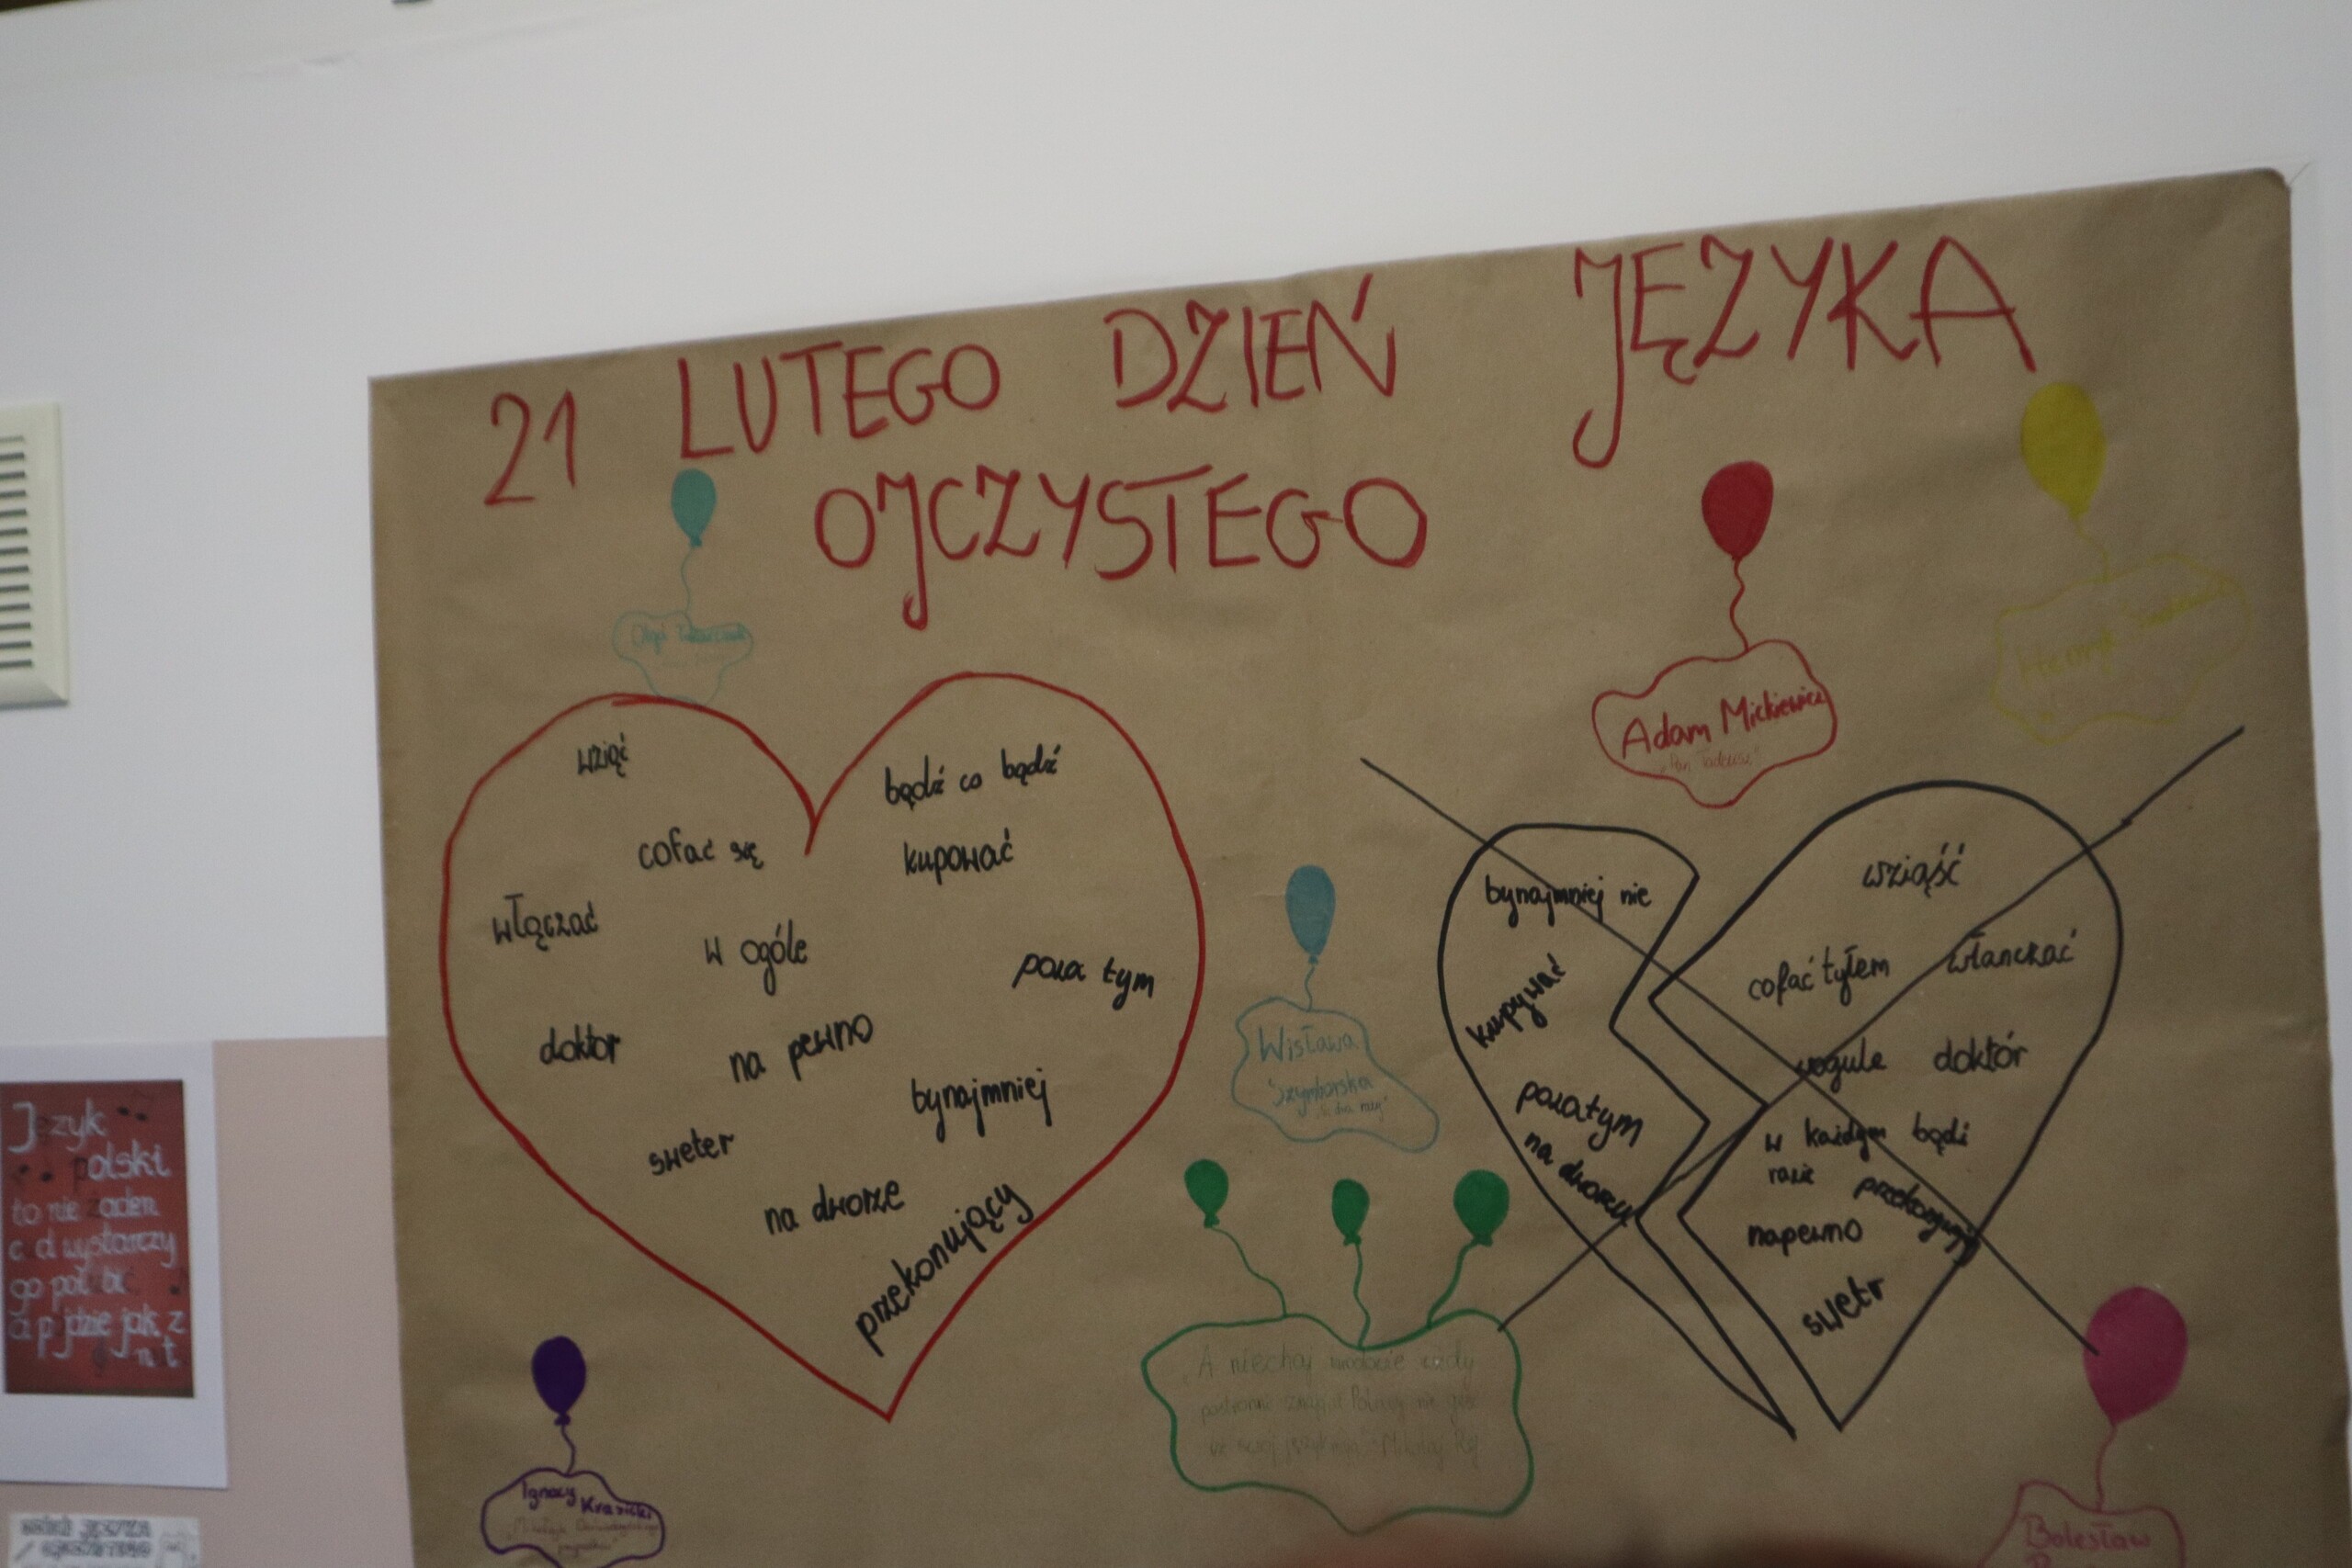 21 LUTEGO DZIEŃ JĘZYKA
OJCZYSTEGO
Olga Tokarczuk
Adam Mickiewicz
"Pan Tadeusz"
Henryk
wziąć
bądź co bądź
cofać się
kupować
włączać
w ogóle
poza tym
doktor
na pewno
bynajmniej
sweter
na dworze
przekonujący
Wisława
Szymborska
bynajmniej nie
kupywać
pozatym
na dworzu
wziąść
cofać tyłem
włanczać
wogule
doktór
w każdym bądź
razie
przekonywujący
napewno
swetr
"A niechaj
postronni znają iż Polacy nie gęsi
iż swój język mają" Mikołaj Rej
Ignacy Krasicki
"Mikołaja Doświadczyńskiego
przypadki"
Bolesław
Język
polski
to nie żaden
wystarczy
go
jak z
nut